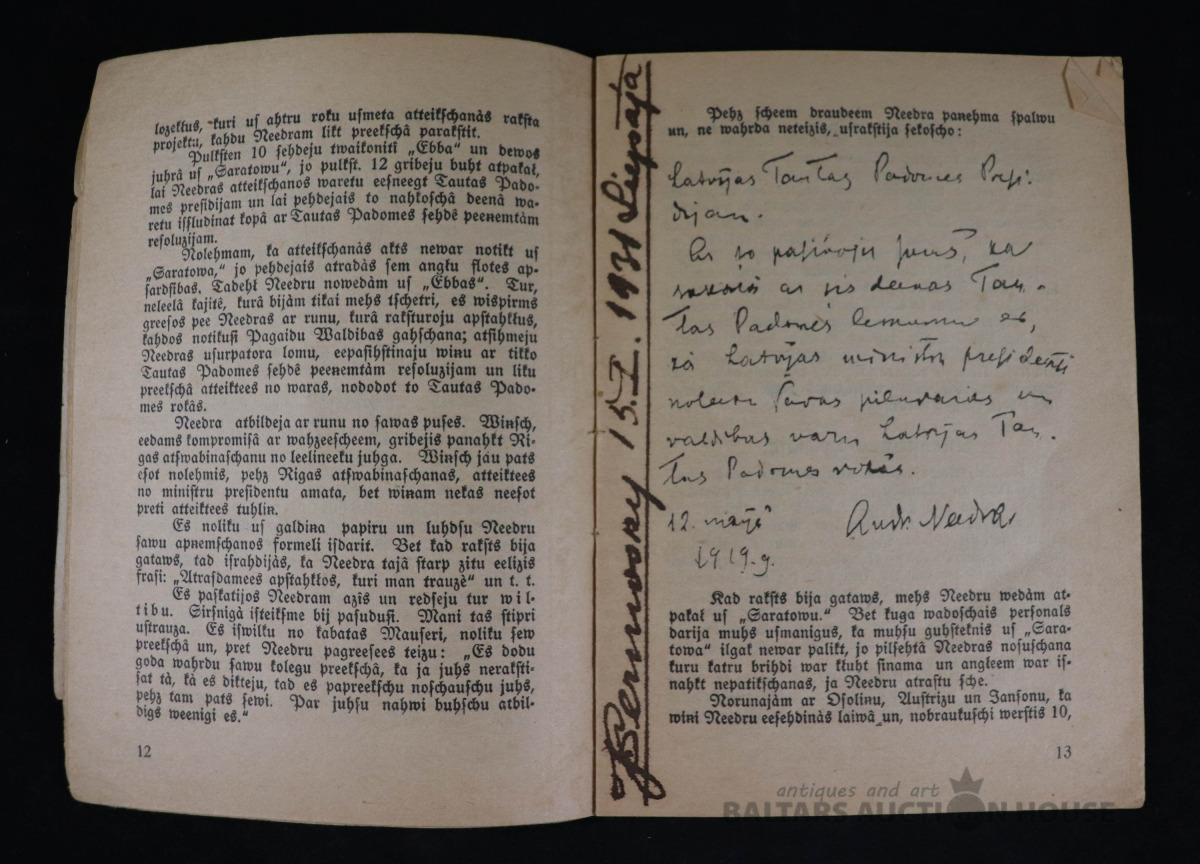 lozekļus, kuri uſ ahtru roku uſmeta atteikſchanàs rakſta
projektu, kahdu Needram likt preekſchâ parakſtit.
Pulkſten 10 ſehdeju twaikonitî „Ebba“ un dewos
juhrâ uſ „Saratowu“, jo pulkſt. 12 gribeju buht atpakaļ,
lai Needras atteikſchanos waretu eeſneegt Tautas Pado-
mes preſidijam un lai pehdejais to nahkoſchâ deenâ wa-
retu iſſludinat kopâ ar Tautas Padomes ſehdê peeņemtàm
reſoluzijam.
Nolehmam, ka atteikſchanàs akts newar notikt uſ
„Saratowa,“ jo pehdejais atradàs ſem angļu flotes ap-
ſardſibas. Tadehļ Needru nowedàm uſ „Ebbas“. Tur,
neleelâ kajitê, kurâ bijàm tikai mehs tſchetri, es wiſpirms
greeſos pee Needras ar runu, kurâ rakſturoju apſtahkļus,
kahdos notikuſi Pagaidu Waldibas gahſchana; atſihmeju
Needras uſurpatora lomu, eepaſihſtinaju wiņu ar tikko
Tautas Padomes ſehdê peeņemtàm reſoluzijam un liku
preekſchâ atteiktees no waras, nododot to Tautas Pado-
mes rokâs.
Needra atbildeja ar runu no ſawas puſes. Wiņſch,
eedams kompromiſâ ar wahzeeſcheem, gribejis panahkt Ri-
gas atſwabinaſchanu no leelineeku juhga. Wiņſch jau pats
eſot nolehmis, pehz Rigas atſwabinaſchanas, atteiktees
no miniſtru preſidentu amata, bet wiņam nekas neeſot
preti atteiktees tuhliņ.
Es noliku uſ galdiņa papiru un luhdſu Needru
ſawu apņemſchanos formeli iſdarit. Bet kad rakſts bija
gataws, tad iſrahdijàs, ka Needra tajâ ſtarp zitu eelizis
fraſi: „Atraſdamees apſtahkļos, kuri man trauzè“ un t. t.
Es paſkatijos Needram azîs un redſeju tur wil-
tibu. Sirſnigâ iſteikſme bij paſuduſi. Mani tas ſtipri
uſtrauza. Es iſwilku no kabatas Mauſeri, noliku ſew
preekſchâ un, pret Needru pagreeſees teizu: „Es dodu
goda wahrdu ſawu kolegu preekſchâ, ka ja juhs nerakſti-
ſat tà, kà es dikteju, tad es papreekſchu noſchauſchu juhs,
pehz tam pats ſewi. Par juhſu nahwi buhſchu atbil-
digs weenigi es.“
12
15.I.1931 Liepaja
Pehz ſcheem draudeem Needra paņehma ſpalwu
un, ne wahrda neteizis, uſrakſtija ſekoſcho:
Latvijas Tautas Padomes Preſi-
dijam.
Ar so paſiņoju Jums, ka
saskaņā ar šis deenas Tau-
tas Padomes lemumu es,
kà Latvijas ministru preſidents
nolecku ſavas pilnvaras un
valdibas varu Latvijas Tau-
tas Padomes rokâs.
12. maijâ Andr. Needra
1919. g.
Kad rakſts bija gataws, mehs Needru wedàm at-
pakaļ uſ „Saratowu.“ Bet kuga wadoſchais perſonals
darija muhs uſmanigus, ka muhſu guhſteknis uſ „Sara-
towa“ ilgak newar palikt, jo pilſehtâ Needras noſuſchana
kuru katru brihdi war kļuht ſinama un angļeem war iſ-
nahkt nepatikſchanas, ja Needru atraſtu ſche.
Norunajàm ar Oſoliņu, Auſtriņu un Janſonu, ka
wiņi Needru eeſehdinàs laiwâ un, nobraukuſchi werſtis 10,
13
antiques and art
BALTARS AUCTION HOUSE